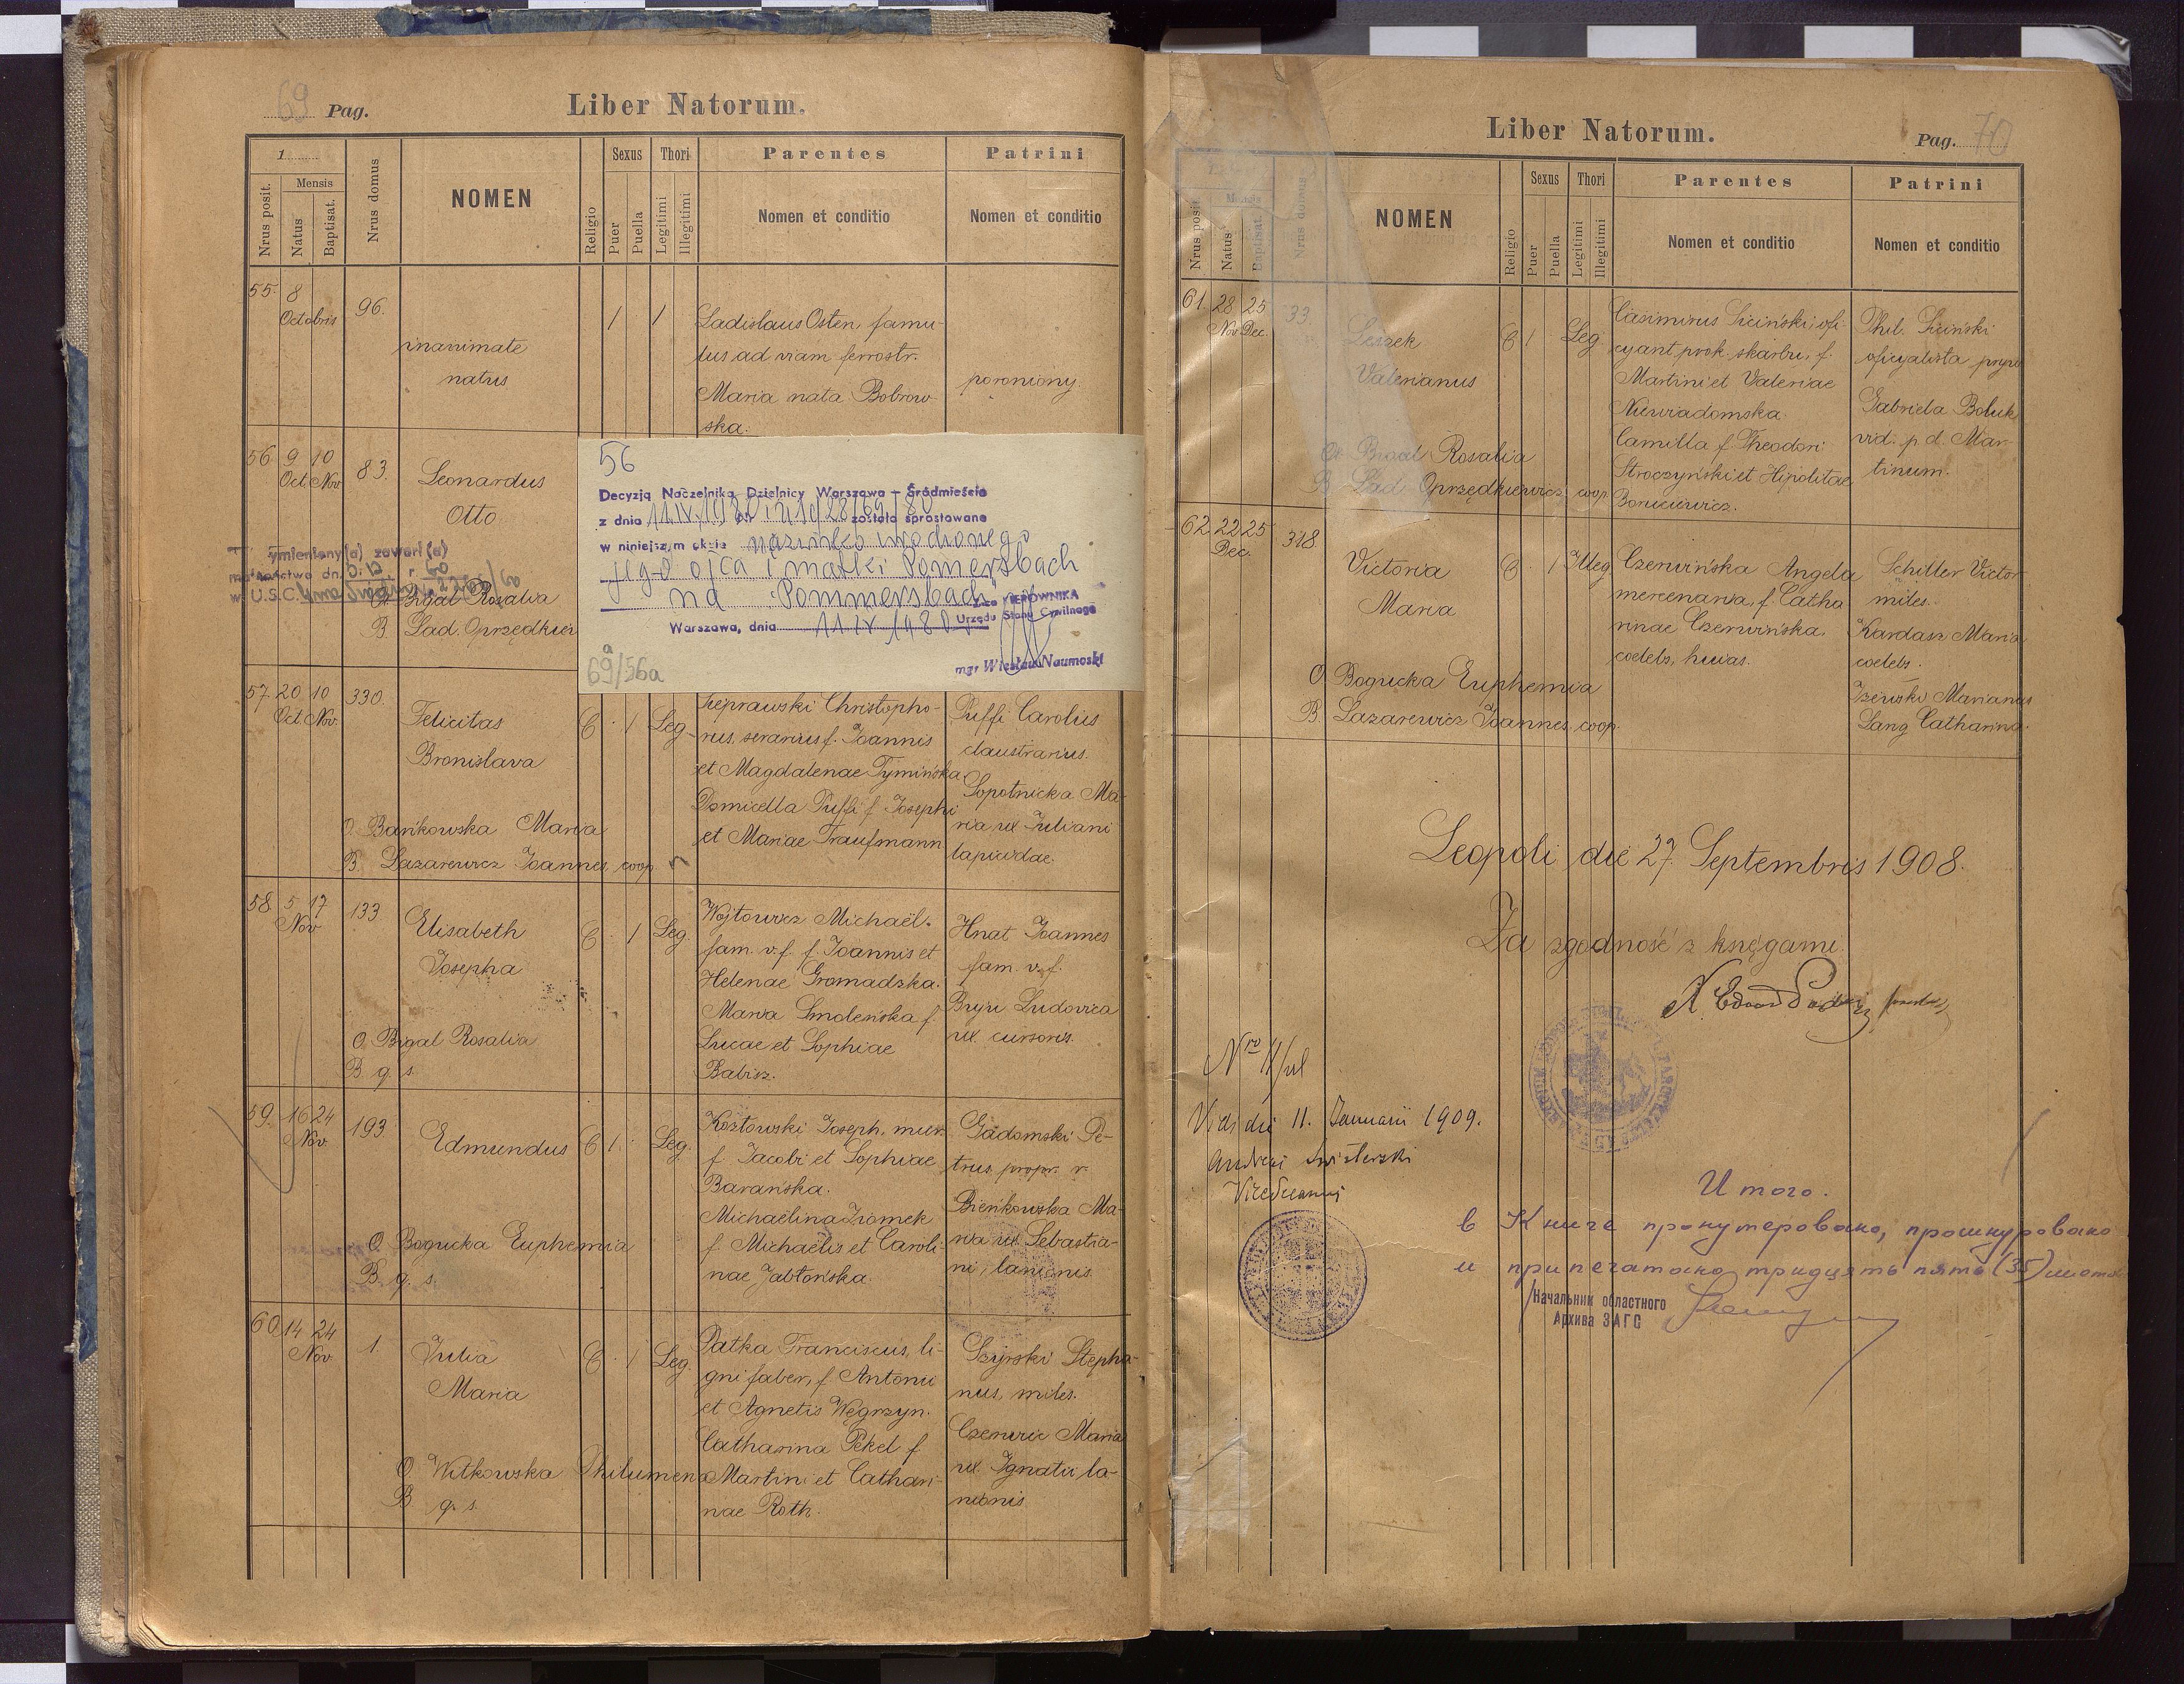 69 Pag.
Liber Natorum.
1
Nrus posit.
Mensis
Natus
Baptisat.
Nrus domus
NOMEN
Religio
Sexus
Puer
Puella
Thori
Legitimi
Illegitimi
Parentes
Nomen et conditio
Patrini
Nomen et conditio
55. 8 Octobris 96.
inanimate
natus
1 1
Ladislaus Osten, famu-
lus ad viam ferrostr.
Maria nata Bobrow-
ska.
poroniony.
56 9 10 83.
Oct. Nov.
Leonardus
Otto
ymieniony(a) zawarł(a)
w U.S.C.
O. Brgal Rosalia
B. Lad. Oprzędkie
56
Decyzją Naczelnika Dzielnicy Warszawa - Śródmieście
z dnia 11.IV. została sprostowane
w niniejszym akcie nazwisko urodzonego
jego ojca i matki Pomersbach
na Pommersbach
KIEROWNIKA
Urzędu Stanu Cywilnego
Warszawa, dnia 11 IV 1980
mgr Wiesław Naumoski
69/56a
57. 20 10 330.
Oct. Nov.
Felicitas
Bronislava
C 1 Leg.
Christopho-
rus, serarius f. Joannis
et Magdalenae Tymińska
Domicella Puffi f. Josephi
et Mariae Traufmann
Puffi Carolus
claustrarius.
Sopotnicka Ma-
ria ux. Juliani
lapicidae.
O. Bańkowska Maria
B. Lazarewicz Joannes, coop.
58 5 17 133
Nov
Elisabeth
Josepha
C 1 Leg.
Wojtowicz Michaël.
fam. v. f. f. Joannis et
Helenae Gromadzka.
Maria Smoleńska f.
Lucae et Sophiae
Babisz.
Hnat Joannes
fam. v. f.
Bryju Ludovica
ux. cursoris.
O. Brgal Rosalia
B. q. s.
59. 16 24 193.
Nov.
Edmundus
C 1 Leg.
Kozłowski Joseph, murr.
f. Jacobi et Sophiae
Barańska.
Michaëlina Ziomek
f. Michaëlis et Caroli-
nae Jabłońska.
Gadomski Pe-
trus, propr. r.
Bieńkowska Ma-
ria ux. Sebastia-
ni, lanionis.
O. Bogucka Euphemia
B. q. s.
60 14 24 1.
Nov
Julia
Maria
C 1 Leg.
Patka Franciscus, li-
gni faber, f. Antonii
et Agnetis Węgrzyn.
Catharina Pekel f.
Martini et Cathari-
nae Roth.
Szyrski Stepha-
nus, miles.
Maria
ux. Ignatii la-
nionis.
O. Witkowska Philumena
B q. s.
Liber Natorum.
Pag. 70
Nrus posit.
Mensis
Natus
Baptisat.
Nrus domus
NOMEN
Religio
Sexus
Puer
Puella
Thori
Legitimi
Illegitimi
Parentes
Nomen et conditio
Patrini
Nomen et conditio
61. 28 25 33.
Nov. Dec.
Leszek
Valerianus
C 1 Leg
Casimirus Liciński, ofi-
cyant prok. skarbu, f.
Martini et Valeriae
Niewiadomska.
Camilla f. Theodori
Stroczyński et Hipolitae
Phil. Liciński
oficyalista pryw.
Gabriela Boluk
vid. p. d. Mar-
tinum.
O. Brgal Rosalia
B. Lad. Oprzędkiewicz, coop.
62. 22 25 318.
Dec.
Victoria
Maria
C 1 Illeg
Czerwińska Angela
mercenaria, f. Catha
rinae Czerwińska.
coelebs, huias.
Schiller Victor
miles.
Kardasz Maria
coelebs.
Marianus
Lang Catharina.
O. Bogucka Euphemia
B. Lazarewicz Joannes, coop.
Leopoli die 27. Septembris 1908.
Za zgodność z księgami.
Vidi die 11. Januarii 1909.
Vicedecanus
Итого.
в Книге пронумеровано, прошнуровано
и припечатано тридцять пять (35) листов
Начальник областного
Архива ЗАГС